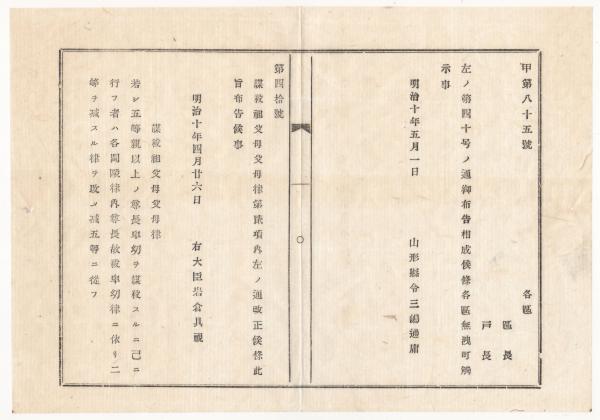 甲第八十五號
各區
區長
戸長
左ノ第四十号ノ通御布告相成候條各區無洩可觸
示事
明治十年五月一日
山形縣令三島通庸
第四拾號
謀殺祖父母父母律第貮項內左ノ通改正候條此
旨布告候事
明治十年四月廿六日
右大臣岩倉具視
謀殺祖父母父母律
若シ五等親以上ノ尊長卑幼ヲ謀殺スルニ已ニ
行フ者ハ各鬪毆律內尊長故殺卑幼律ニ依リ二
等ヲ減スル律ヲ改メ減五等ニ從フ